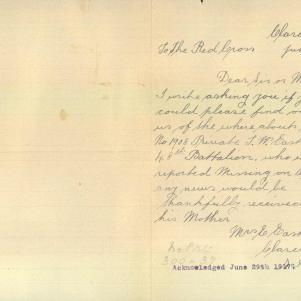 Clare
To The Red Cross Jun
Dear Sir or M
I write asking you if y
could please find ou
us of the where about
No 1908 Private T. W. East
48th Battalion, who w
reported Missing on A
any news would be
thankfully received
his Mother
Mrs E East
Clare
300-37
Acknowledged June 29th 1917.